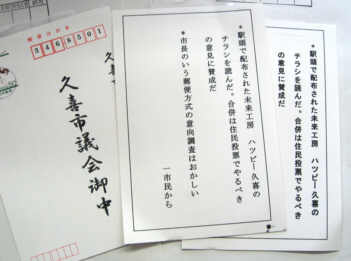 郵便はがき
3468501
久喜市議会御中
*駅頭で配布された未来工房 ハッピー久喜の
チラシを読んだ。合併は住民投票でやるべき
の意見に賛成だ
*市長のいう郵便方式の意向調査はおかしい
一市民から
*駅頭で配布された未来工房 ハッピー久喜の
チラシを読んだ。合併は住民投票でやるべき
の意見に賛成だ